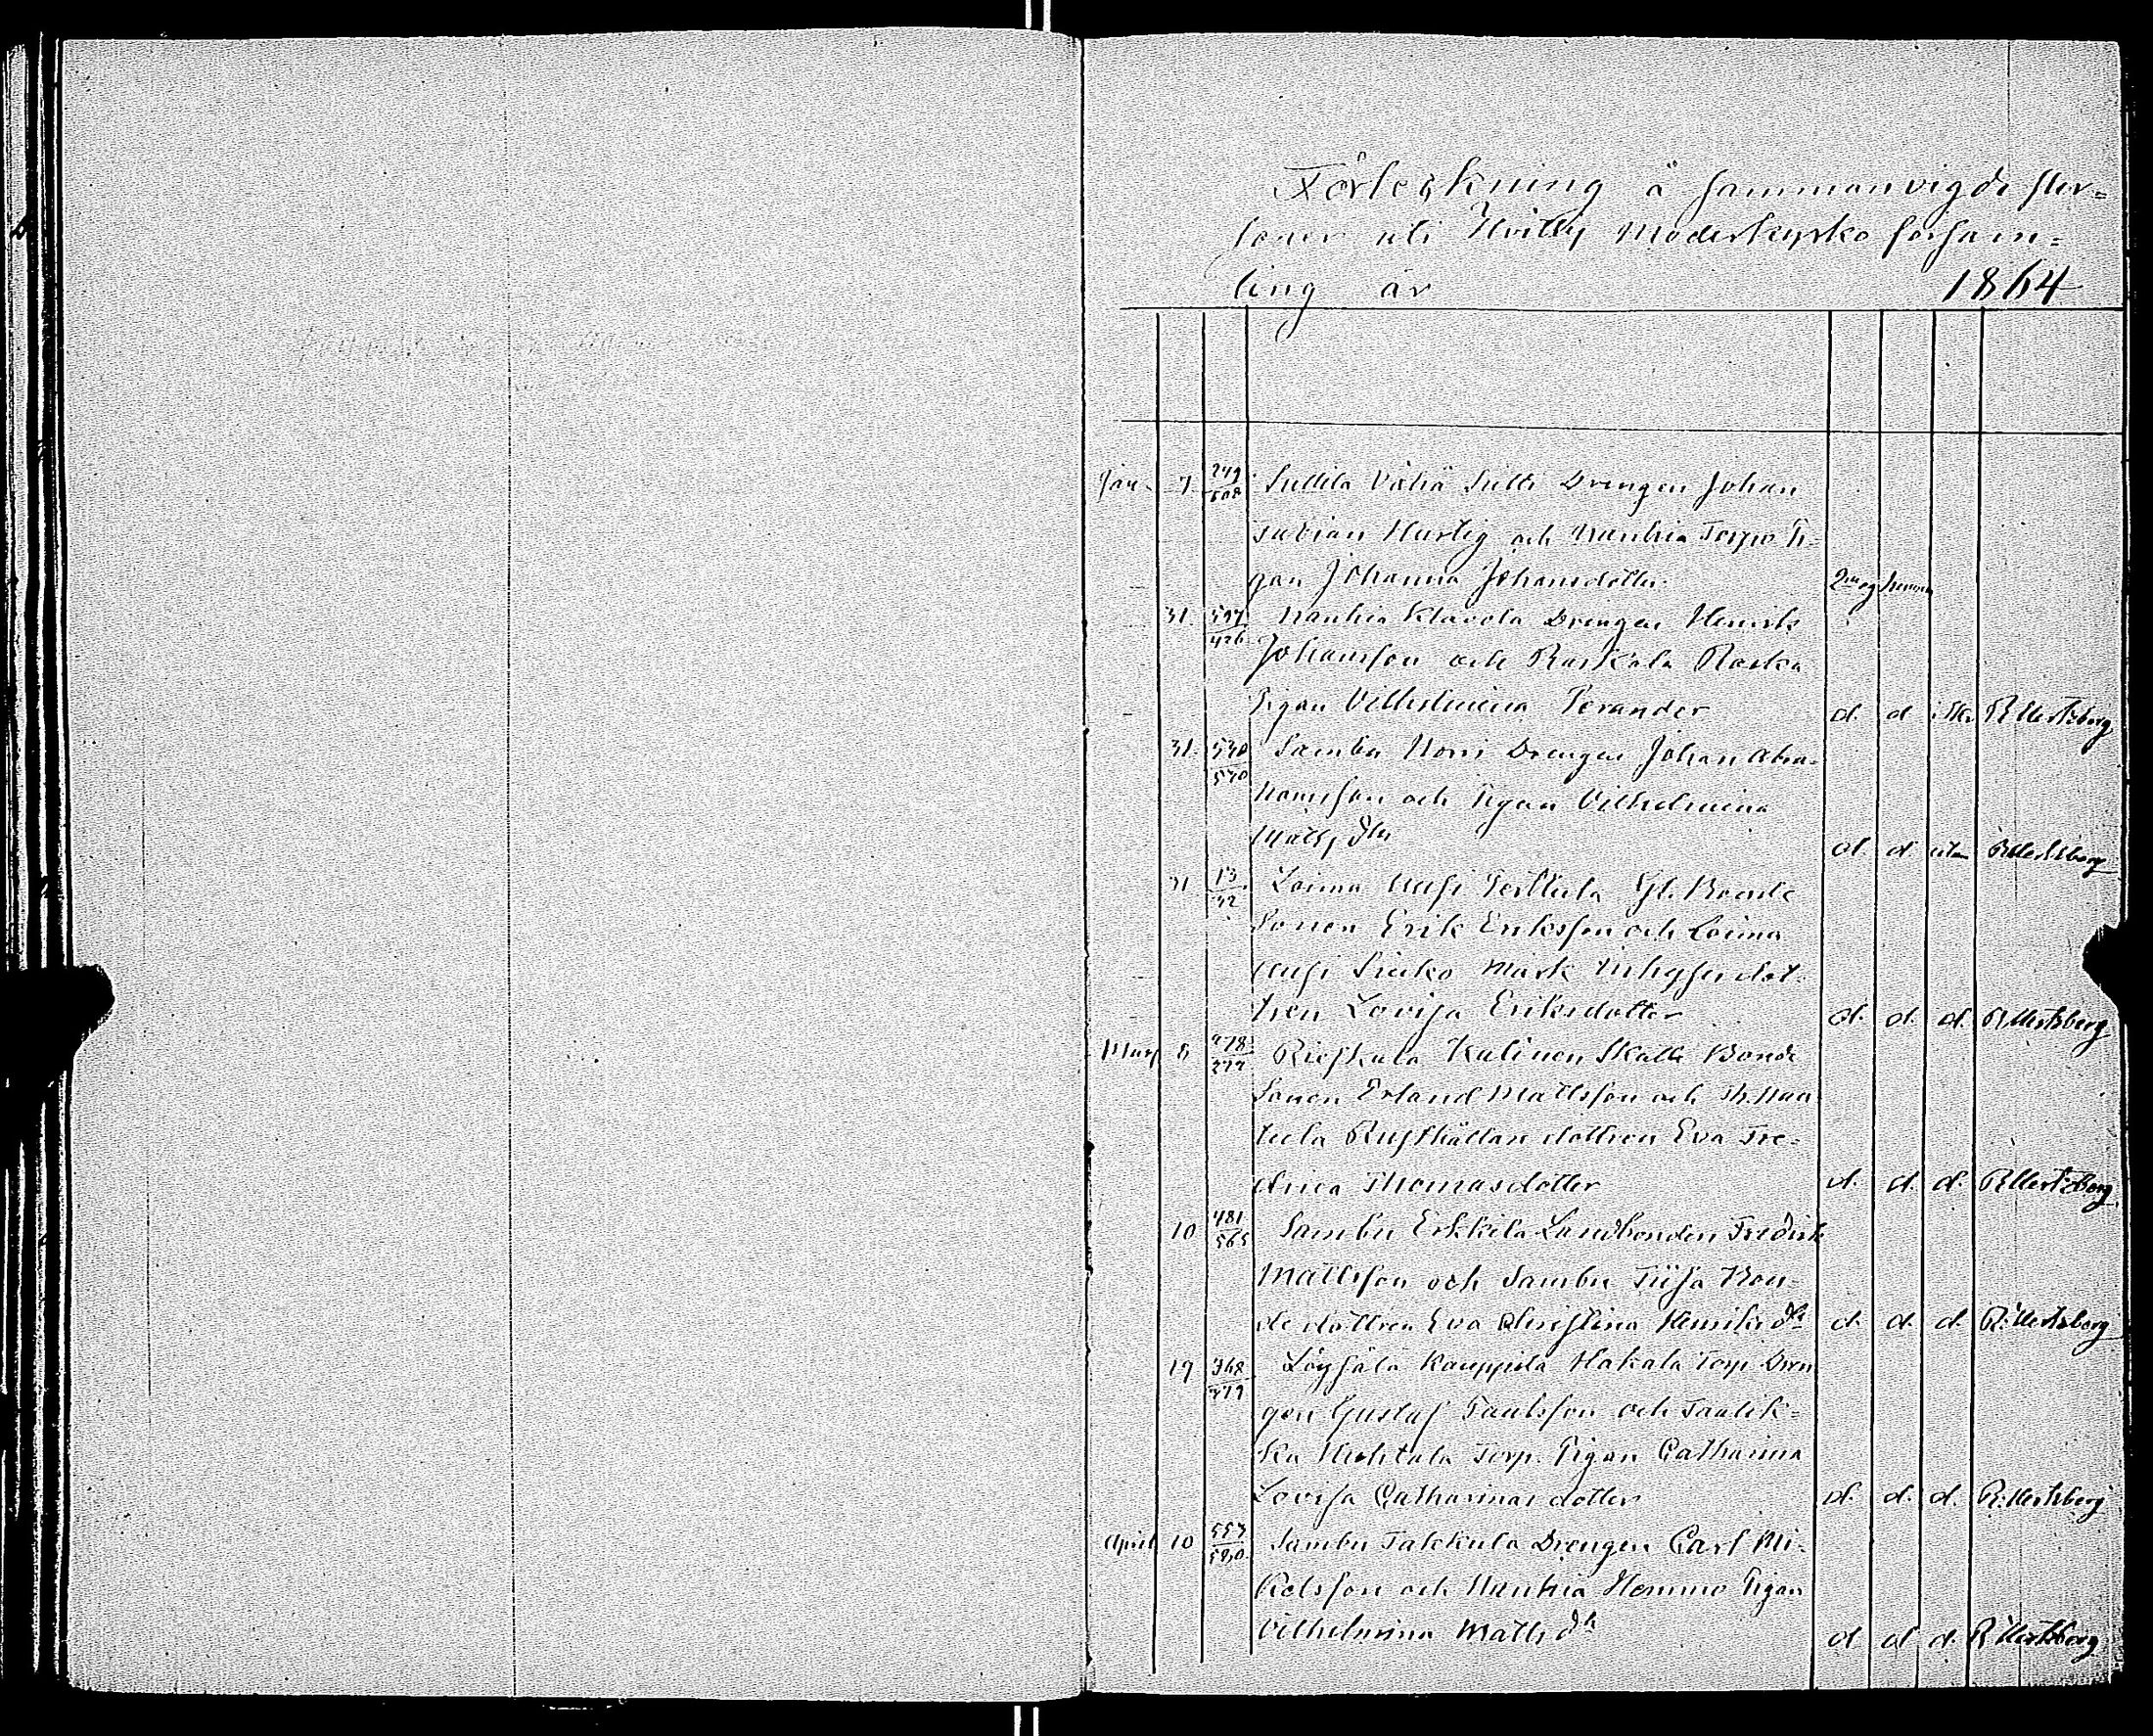 Förteckning å sammanvigde per=
soner uti Hvittis Moderkyrko försam=
ling år 1864
Jan. 7 249/508 Suttila Vähä Sutti Drengen Johan
Fabian Hurtig och Nanhia Torpo Pi-
gan Johanna Johansdotter
31. 597/426 Nanhia Klavola Drengen Henrik
Johansson och Raskala Raska
Pigan Vilhelmina Perander d. d R Mertzberg
31. 538/570 Sambu Norri Drengen Johan Abra-
hamsson och Pigan Vilhelmina
Matts dtr d. d utan R Mertzberg
31 13/32 Loima Alasi Perttula Gl. Bonde
Sonen Erik Eriksson och Loima
Alasi Sieko Mark
tren Lovisa Eriksdotter d. d. d. R Mertzberg
Mars 8 478/277 Rieskala Kulinen Skatte Bonde
Sonen Erland Mattsson och
tula Rusthållare dottren Eva Fre-
drica Thomasdotter d. d. d. R Mertzberg
10 481/565 Sambu Erkkila Landbonden Fredrik
Mattsson och Sambu Tiisa Bon-
de dottren Eva Christina Henriks dtr d. d. d. R. Mertzberg
19 368/479 Löysälä Kauppila Hakala Torp. Dren
gen Gustaf Paulsson och
ka Huhtala Torp. Pigan Catharina
Lovisa Catharinas dotter d. d. d. R. Mertzberg
April 10 553/580 Sambu Talkkula Drengen Carl Mi-
kelsson och Nanhia Hemmo Pigan
Vilhelmina Matts dtr d d d. R Mertzberg